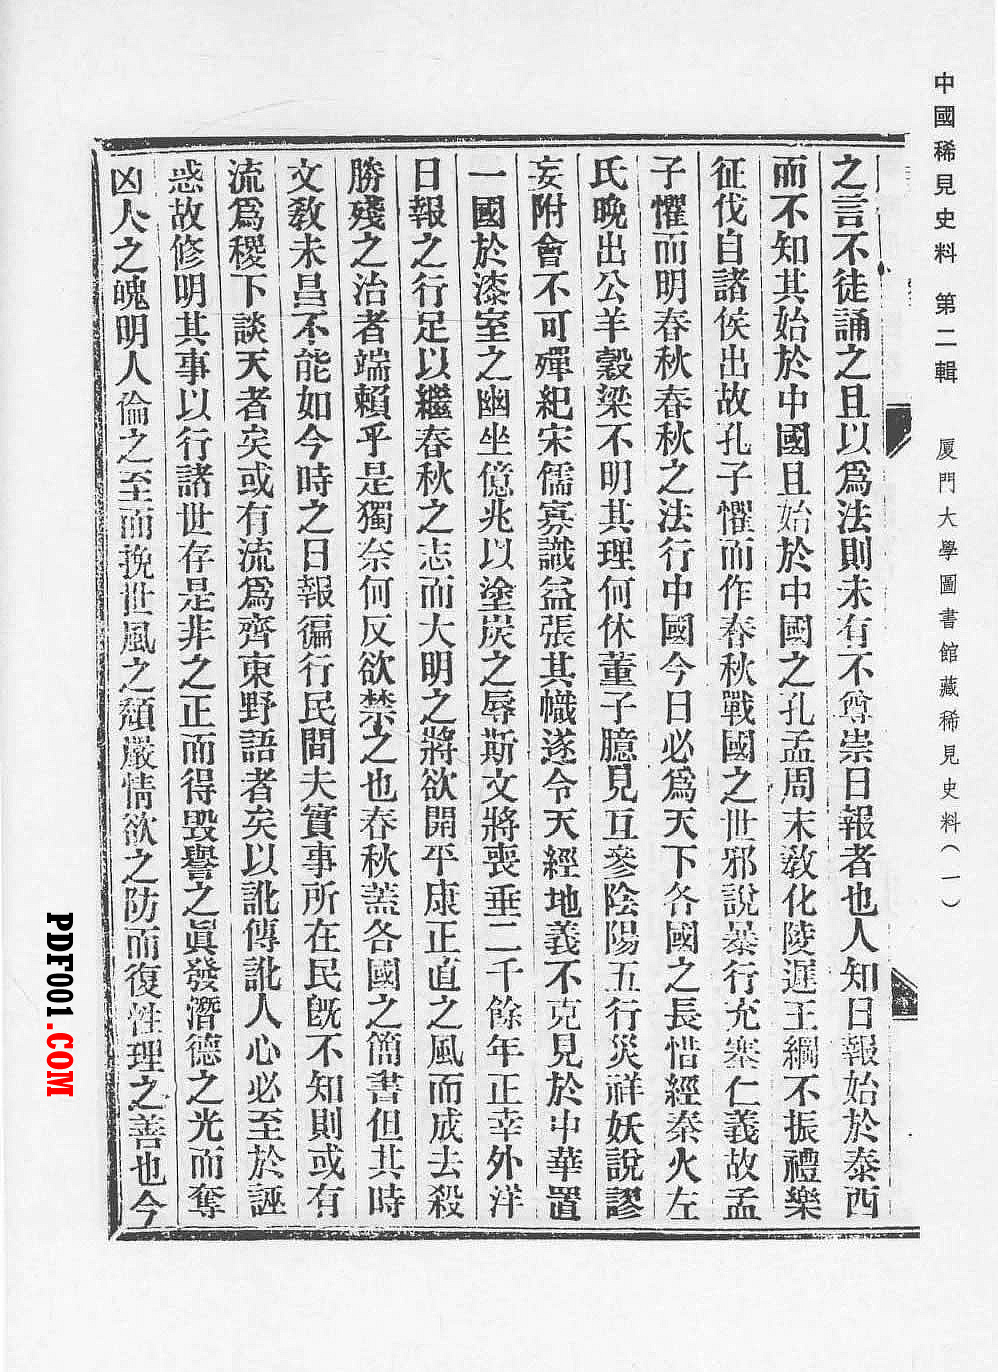 中國稀見史料 第二輯 厦門大學圖書館藏稀見史料(一)
之言不徒誦之且以爲法則未有不尊崇日報者也人知日報始於泰西
而不知其始於中國且始於中國之孔孟周末敎化陵遲王綱不振禮樂
征伐自諸侯出故孔子懼而作春秋戰國之世邪說暴行充塞仁義故孟
子懼而明春秋春秋之法行中國今日必爲天下各國之長惜經秦火左
氏晚出公羊穀梁不明其理何休董子臆見互參陰陽五行災祥妖說謬
妄附會不可殫紀宋儒寡識益張其幟遂令天經地義不克見於中華置
一國於漆室之幽坐億兆以塗炭之辱斯文將喪垂二千餘年正幸外洋
日報之行足以繼春秋之志而大明之將欲開平康正直之風而成去殺
勝殘之治者端賴乎是獨奈何反欲禁之也春秋蓋各國之簡書但其時
文敎未昌不能如今時之日報徧行民間夫實事所在民旣不知則或有
流爲稷下談天者矣或有流爲齊東野語者矣以訛傳訛人心必至於誣
惑故修明其事以行諸世存是非之正而得毀譽之眞發潛德之光而奪
凶人之魄明人倫之至而挽世風之頽嚴情欲之防而復性理之善也今
PDF001.COM